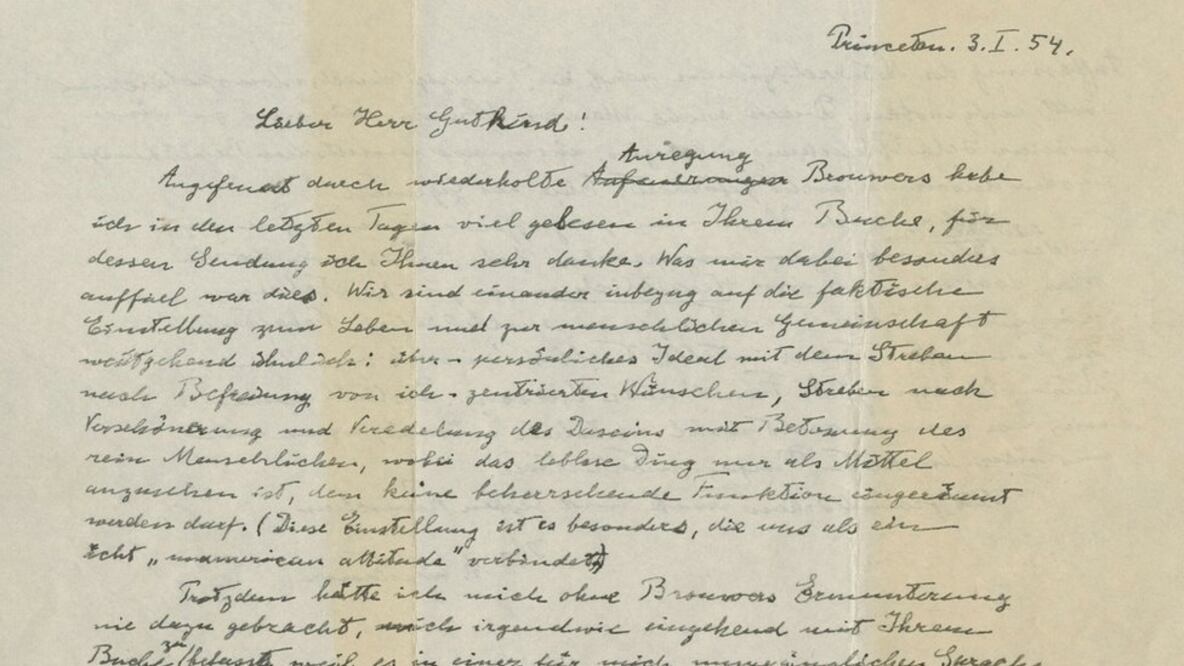 Princeton. 3. I. 54.
Lieber Herr Gutkind!
Anregung
Angefeuert durch wiederholte Anfeuerungen Brouwers habe
ich in den letzten Tagen viel gelesen in Ihrem Buche, für
dessen Sendung ich Ihnen sehr danke. Was mir dabei besonders
auffiel war dies. Wir sind einander inbezug auf die faktische
Einstellung zum Leben und zur menschlichen Gemeinschaft
weitgehend ähnlich: über-persönliches Ideal mit dem Streben
nach Befreiung von ich-zentrierten Wünschen, Streben nach
Verschönerung und Veredelung des Daseins mit Betonung des
rein Menschlichen, wobei das leblose Ding nur als Mittel
anzusehen ist, dem keine beherrschende Funktion eingeräumt
werden darf. (Diese Einstellung ist es besonders, die uns als ein
echt „unamerican attitude“ verbindet)
Trotzdem hätte ich mich ohne Brouwers Ermunterung
nie dazu gebracht, mich irgendwie eingehend mit Ihrem
zu
Buche befassen, weil es in einer für mich unzugänglichen Sprache